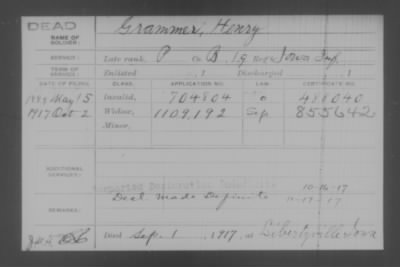 DEAD
NAME OF SOLDIER: Grammer, Henry
SERVICE: Late rank, P Co. B, 19 Reg't Iowa Inf.
TERM OF SERVICE: Enlisted , 1 Discharged , 1
DATE OF FILING. CLASS. APPLICATION NO. LAW. CERTIFICATE NO.
1889 May 15 Invalid, 704804 488040
1917 Oct 2 Widow, 1109,192 855642
Minor,
ADDITIONAL SERVICES:
10-16-17
REMARKS: Decl. Made Definite 10-17-17.
Died Sep. 1, 1917, at Libertyville Iowa